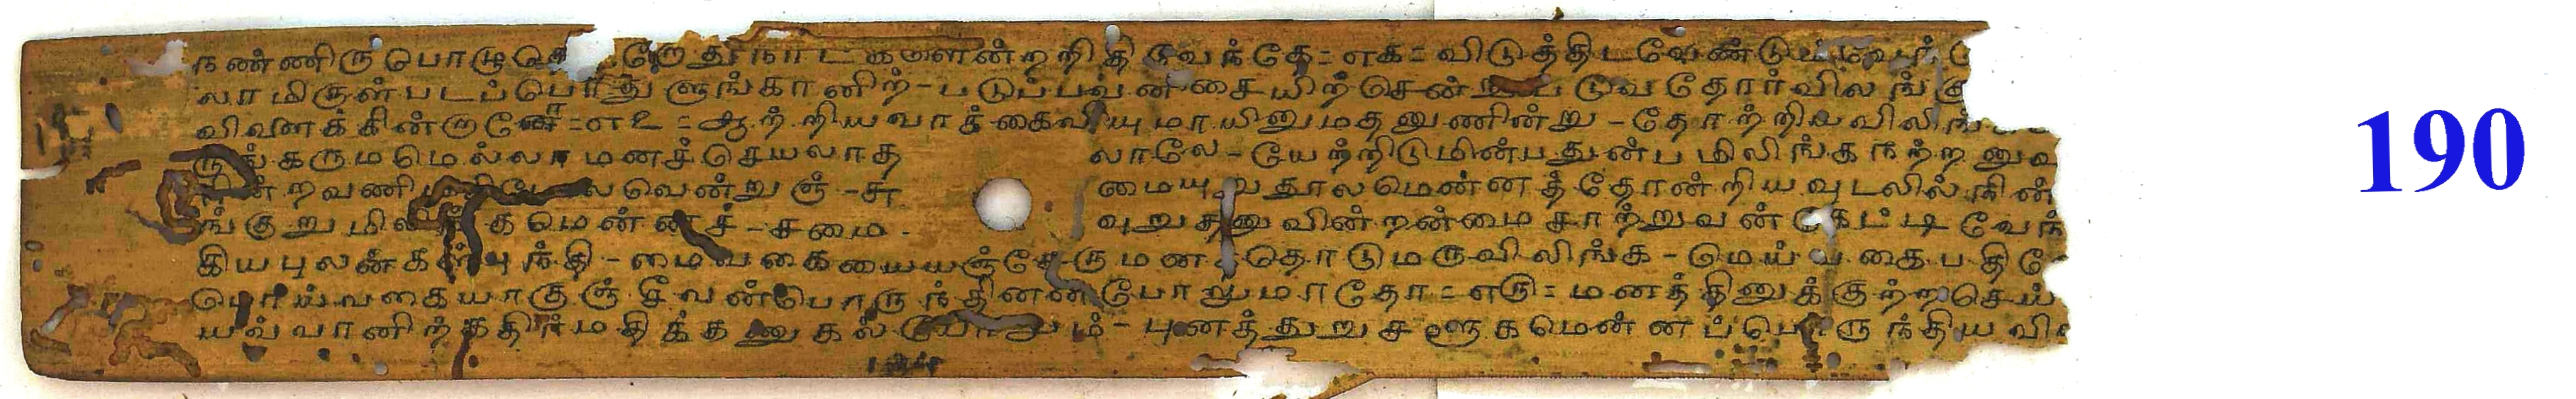 நண்ணிருபொழுதெ றெதுநாடகமென்றறிதிருவேந்தே = எக = விடுத்திடவேண்டும்
லாமிருள்படப்பொதுளுங்கானிற் - படுப்பவனிசையிற்சென்று படுவதோர்விலங்கு
விவனக்கின்றானே = எஉ = ஆற்றியவாக்கைவீயுமாயினுமதனுணின்று - தோற்றியவிலிங்
ருங்கருமமெல்லாமனச்செயலாத லாலே - யேற்றிடுமின்பதுன்பமிலிங்கநற்றனுவ
நின்றவணி லவென்றுஞ் - சு மையுவதூலமென்னத்தோன்றியவுடலில்நின்
ங்குறுமிலிங்கமென்னச் - சமை வுறுதனுவின்றன்மைசாற்றுவன்கேட்டிவேந்
கியபுலன்கள்புந்தி - மைவகையையஞ்சேருமனத்தொடுமருவிலிங்க - மெய்வகைபதி
பொய்வகையாகுஞ்சீவன்பொருந்தினன்போலுமாதோ = எரு = மனத்தினுக்குற்றசெய்
யவ்வானிற்கதிர்மதிக்கணுகல்போலும் - புனத்துறுசளூகமென்னப்பொருந்தியவி
190